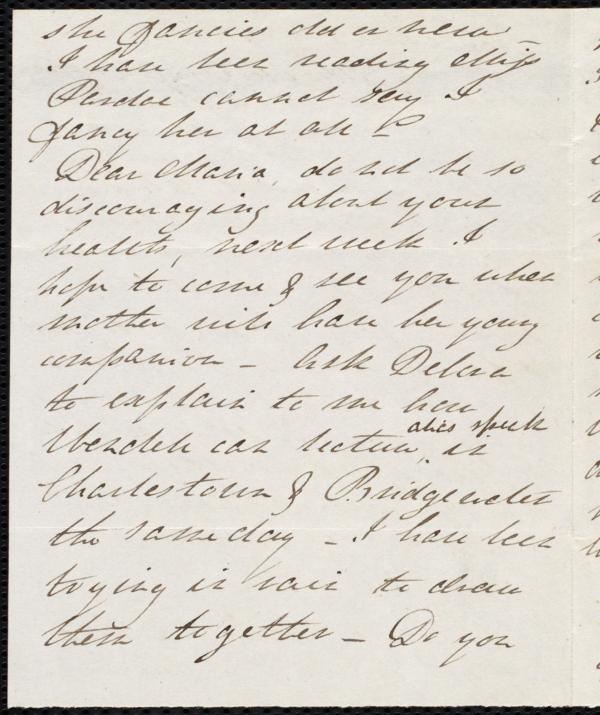 she fancies old or new –
I have been reading Miss
Pardoe cannot say I
fancy her at all –
Dear Maria, do not be so
discouraging about your
health, next week I
hope to come & see you when
mother will have her young
companion – Ask Debora
to explain to me how
alias speak
Wendell can lecture, in
Charlestown & Bridgewater
the same day – I have been
trying in vain to draw
them together – Do you